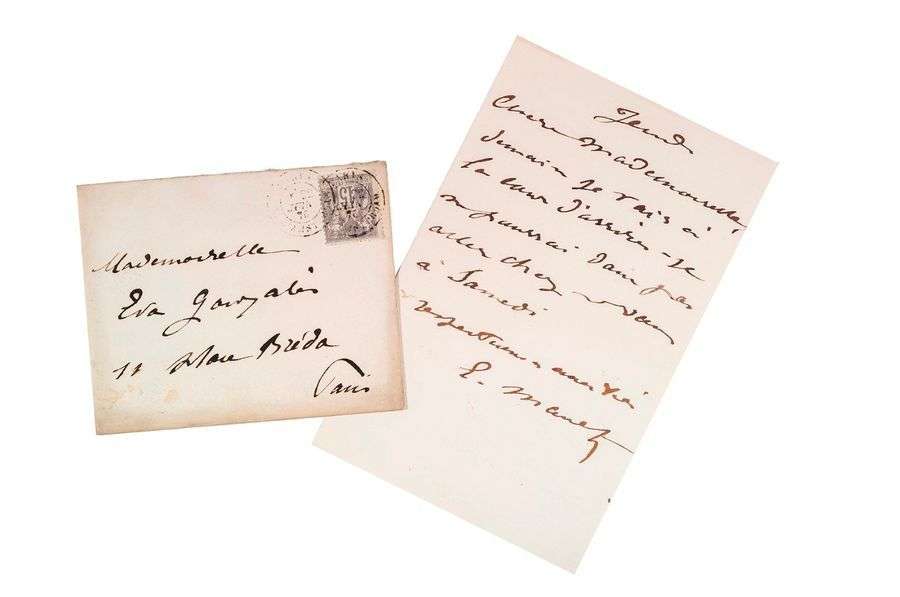 Mademoiselle
Eva Gonzalès
11 place Bréda
Paris
15
Jeudi
Chère Mademoiselle,
demain je vais à
la cour d'assises - je
ne pourrai donc pas
aller chez vous
à Samedi
respectueux amitiés
E. Manet